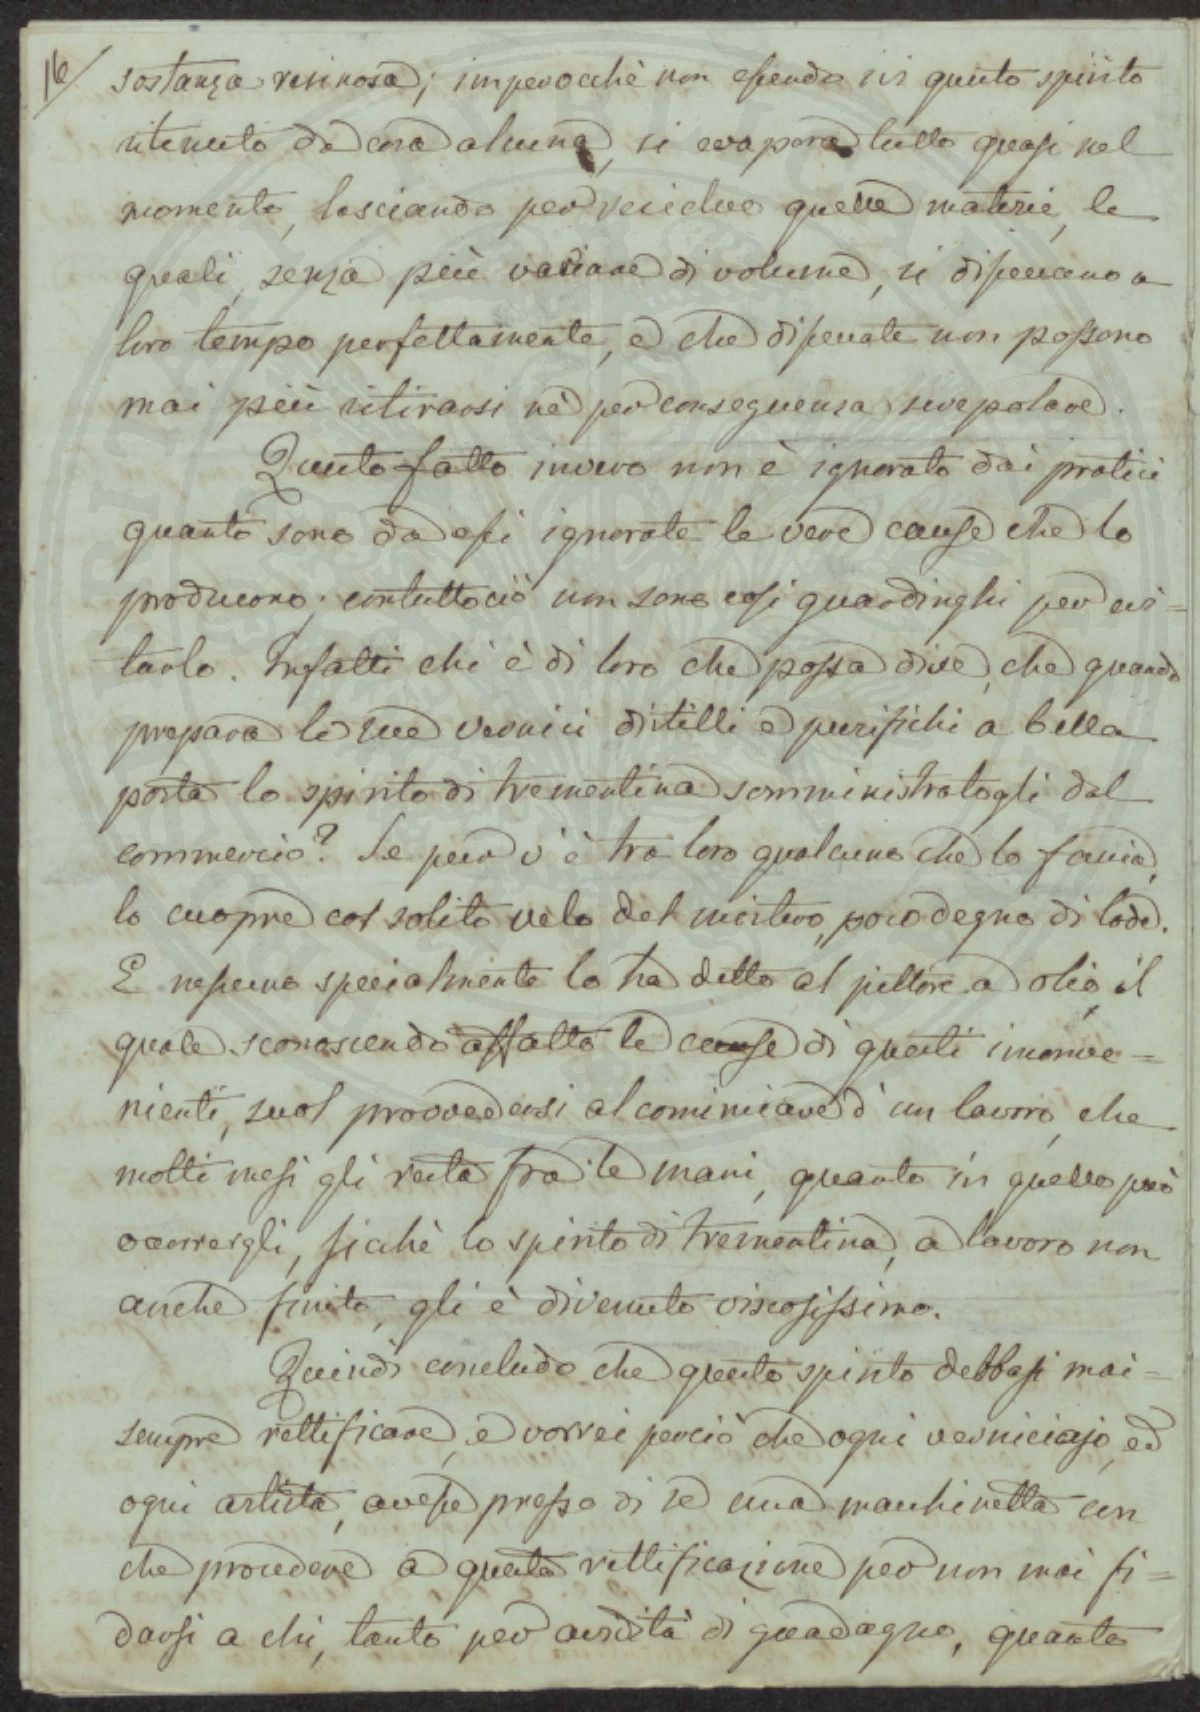 16/
sostanza resinosa; imperocchè non essendo ivi questo spirito
ritenuto da cosa alcuna, si evapora tutto quasi nel
momento, lasciando per residuo quelle materie, le
quali, senza più variare di volume, si disseccano a
loro tempo perfettamente, e che disseccate non possono
mai più ritirarsi nè per conseguenza screpolare.
Questo fatto invero non è ignorato dai pratici
quanto sono da essi ignorate le vere cause che lo
producono; contuttociò non sono così guardinghi per evi=
tarlo. Infatti chi è di loro che possa dire, che quando
prepara le sue vernici distilli e purifichi a bella
posta lo spirito di trementina somministratogli dal
commercio? Se pure v'è tra loro qualcuno che lo faccia,
lo cuopre col solito velo del mistero, poco degno di lode.
E nessuno specialmente lo ha detto al pittore a olio, il
quale sconoscendo affatto le cause di questi inconve=
nienti, suol provvedersi al cominciare d'un lavoro, che
molti mesi gli resta fra le mani, quanto in quello può
occorrergli, sicchè lo spirito di trementina, a lavoro non
anche finito, gli è divenuto viscosissimo.
Quindi concludo che questo spirito debbasi mai=
sempre rettificare, e vorrei perciò che ogni verniciajo, ed
ogni artista, avesse presso di se una macchinetta con
che procedere a questa rettificazione per non mai fi=
darsi a chi, tanto per avidità di guadagno, quanto